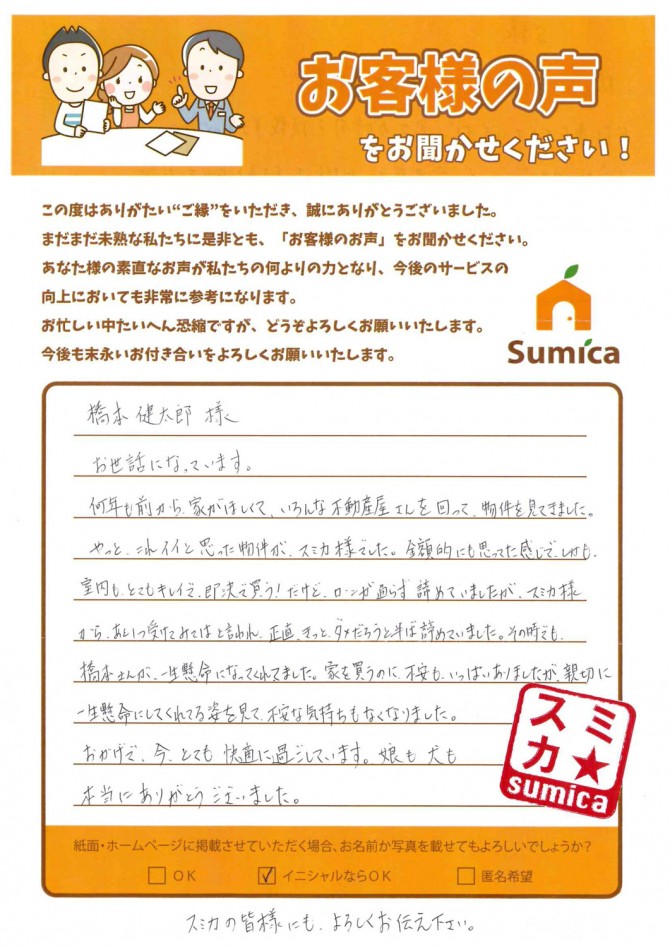 お客様の声
をお聞かせください！
この度はありがたい“ご縁”をいただき、誠にありがとうございました。
まだまだ未熟な私たちに是非とも、「お客様のお声」をお聞かせください。
あなた様の素直なお声が私たちの何よりの力となり、今後のサービスの
向上においても非常に参考になります。
お忙しい中たいへん恐縮ですが、どうぞよろしくお願いいたします。
今後も末永いお付き合いをよろしくお願いいたします。
Sumica
橋本 健太郎 様
お世話になっています。
何年も前から、家がほしくて、いろんな不動産屋さんを回って、物件を見てきました。
やっと、これイイと思った物件が、スミカ様でした。金額的にも思ってた感じで、しかも、
室内も、とてもキレイで、即決で買う！だけど、ローンが通らず諦めていましたが、スミカ様
から、あと1つ受けてみてはと言われ、正直、きっと、ダメだろうと半ば諦めていました。その時でも、
橋本さんが、一生懸命になってくれてました。家を買うのに、不安も、いっぱいありましたが、親切に
一生懸命にしてくれてる姿を見て、不安な気持ちもなくなりました。
おかげで、今、とても快適に過ごしています。娘も犬も
本当にありがとうございました。
スミカ★
sumica
紙面・ホームページに掲載させていただく場合、お名前か写真を載せてもよろしいでしょうか？
□ OK ☑ イニシャルならOK □ 匿名希望
スミカの皆様にも、よろしくお伝え下さい。